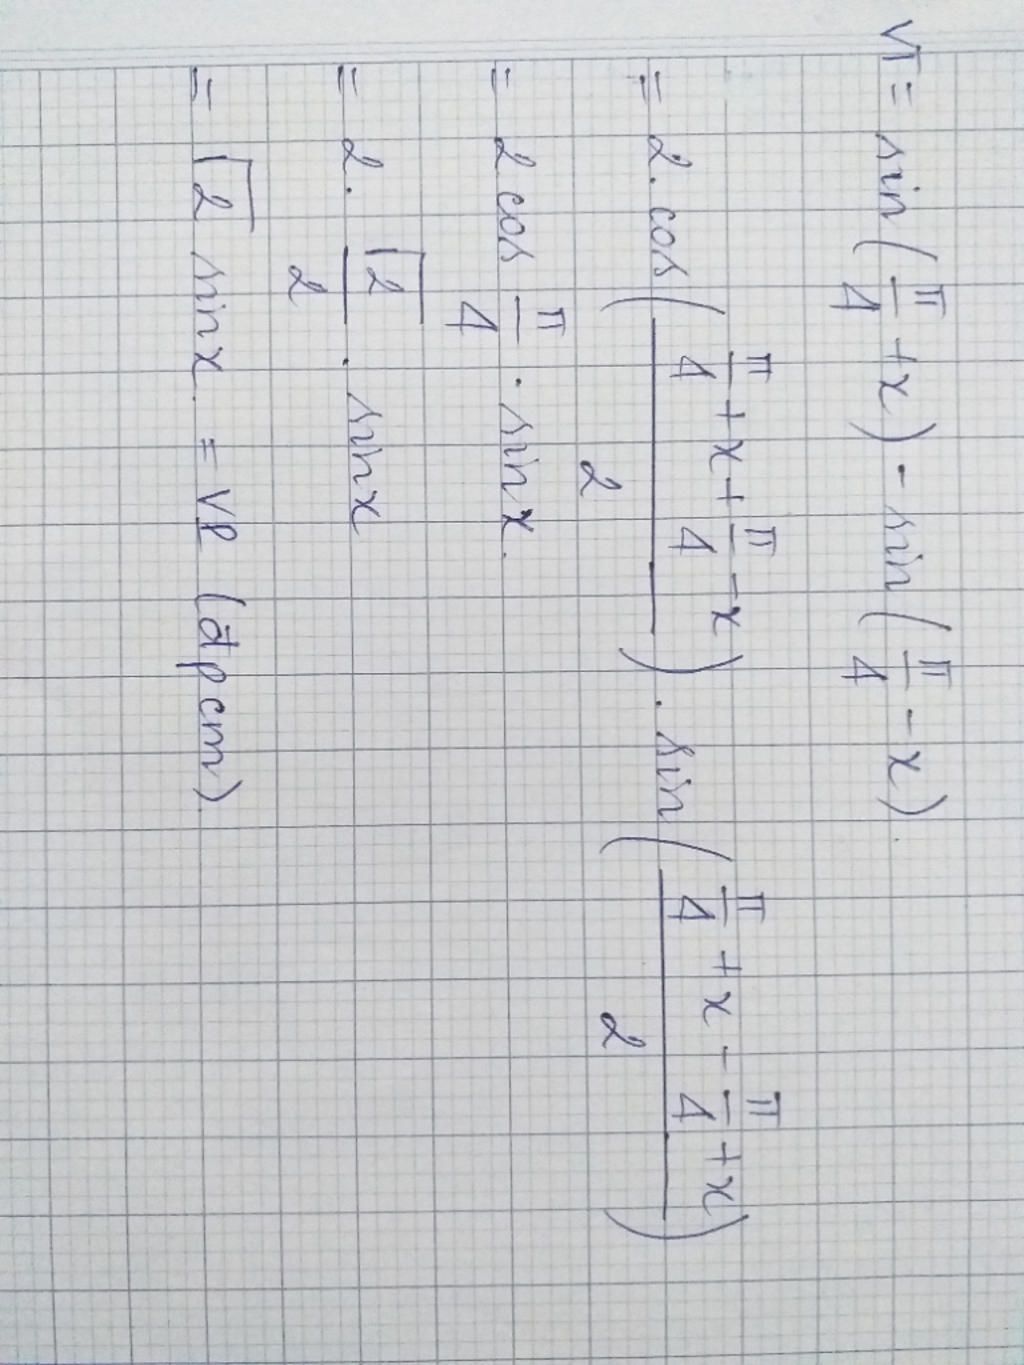 VT = sin(π/4 + x) - sin(π/4 - x).
= 2.cos((π/4 + x + π/4 - x)/2) . sin((π/4 + x - π/4 + x)/2)
= 2 cos π/4 . sin x.
= 2. √2/2 . sin x
= √2 sin x. = VP (đpcm)